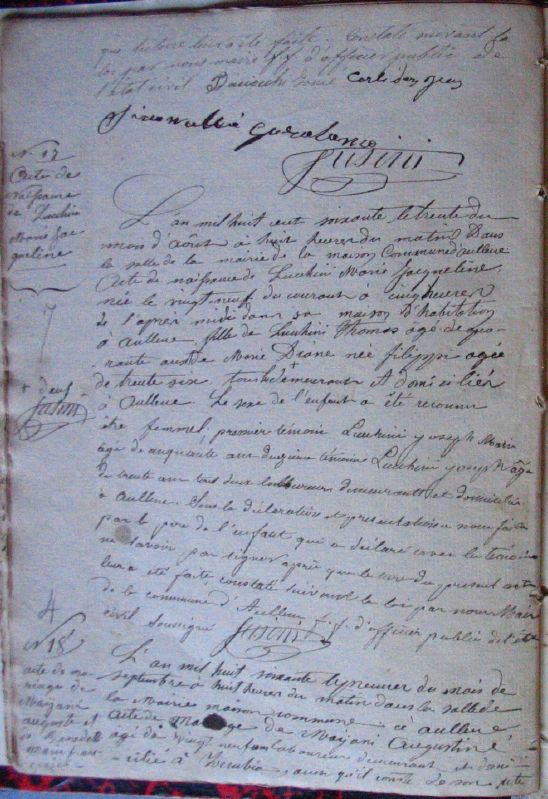 que lecture leur a été faite. Constaté suivant la
loi par nous maire f.f. d'officier public de
l'état civil
Susini
N. 17
Acte de
naissance
de Lucchini
Marie Jac
queline
L'an mil huit cent soixante, le trente du
mois d'Aout à huit heures du matin Dans
la salle de la mairie de la maison Commune d'aullene
Acte de naissance de Lucchini Marie Jacqueline
née le vingt neuf du courant à cinq heures
de l'après midi dans sa maison d'habitation
à aullene, fille de Lucchini Thomas âgé de qua
rante ans et de Marie Diane née filippi agée
de trente six, tous deux demeurant et domiciliés
à Aullene. Le sexe de l'enfant a été reconnu
être femmel, premier temoin Lucchini joseph Marie
âgé de cinquante ans deuxieme témoin Lucchini joseph âgé
de trente ans tous deux laboureurs demeurants et domiciliés
à Aullene. Sur la déclaration et presentation a nous faite
par le père de l'enfant qui a déclaré avec les temoins
ne savoir par signer après que lecture du present acte
leur a été faite constaté suivant la loi par nous Maire
de la commune d'Aullene f.f. d'officier public de l'état
civil soussigné Susini
+ deux
Susini
4
N. 18
acte de ma
riage de
Mozziani
auguste et
L'an mil huit soixante le premier du mois de
septembre à huit heures du matin dans la salle de
la Mairie maison commune à aullene,
acte de Mariage de Augustine,
agé de vingt neuf ans laboureur demeurant et domi
cilié à ainsi qu'il conste de son acte